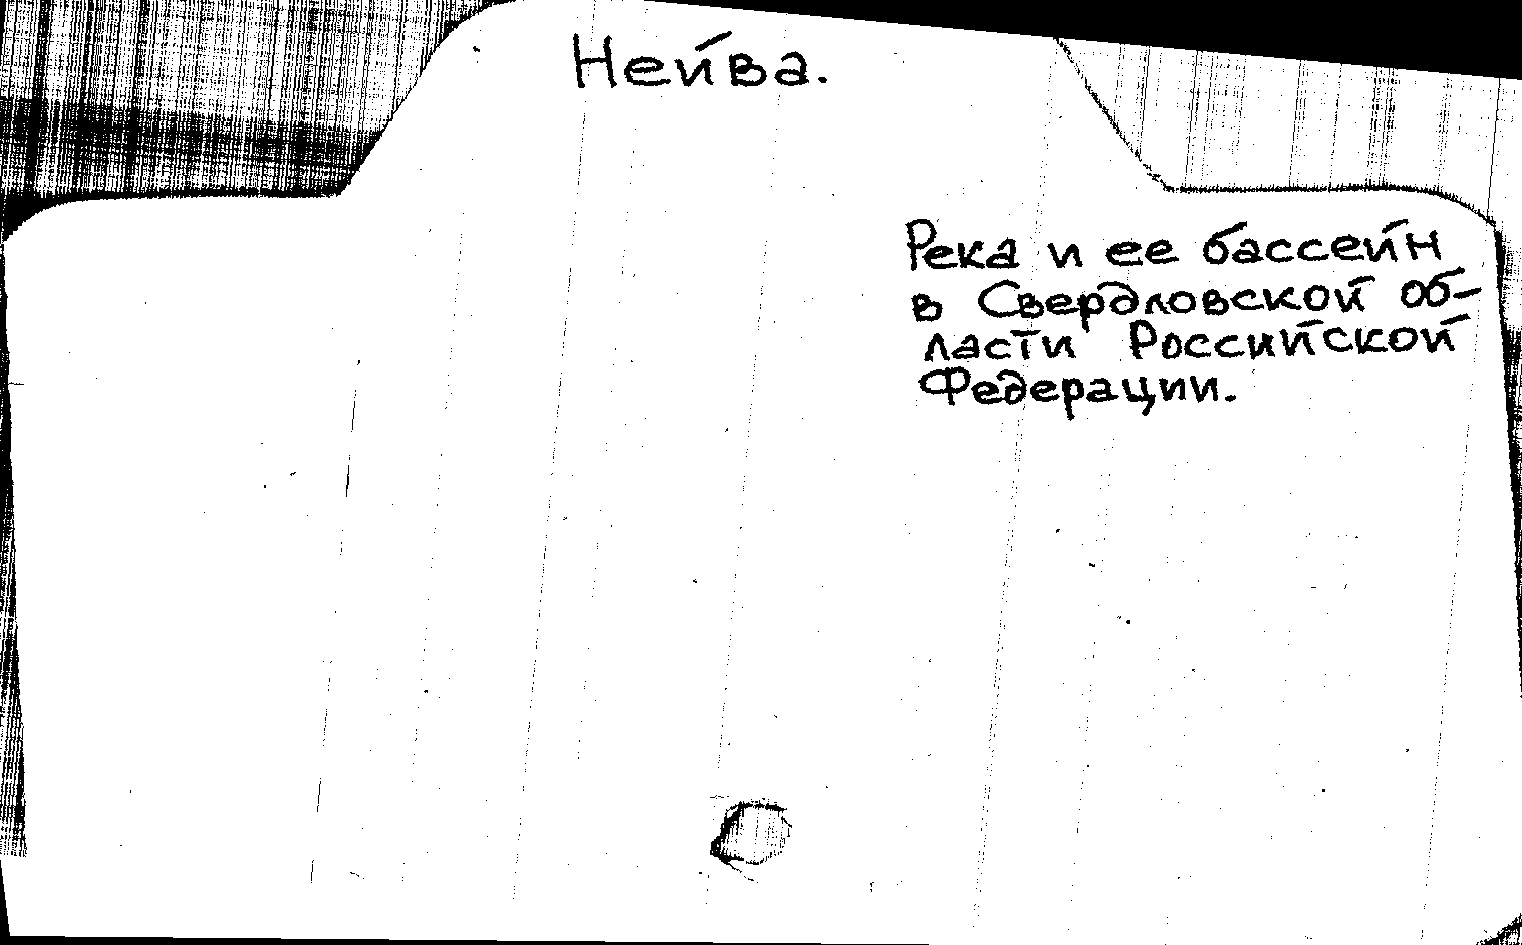 Нейва.
Река и ее бассейн
в Свердловской об-
ласти Российской
Федерации.